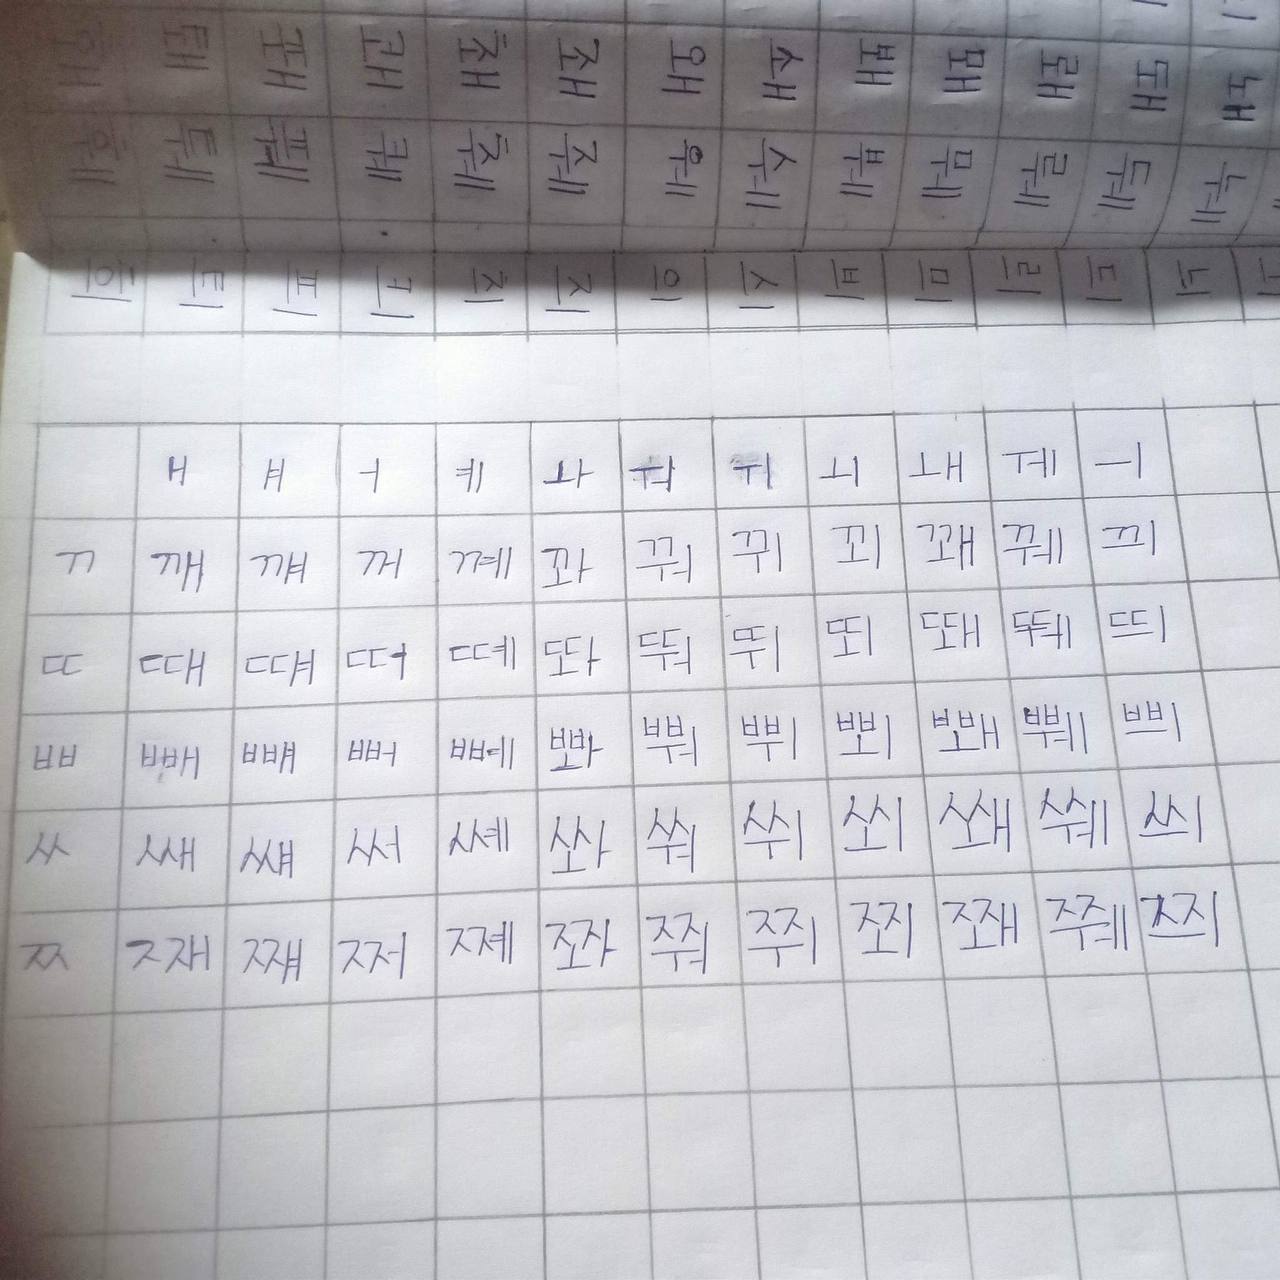 홰 퇘 퐤 쾌 쵀 좨 왜 쇄 봬 뫠 뢔 돼 놰
훼 퉤 풰 퀘 췌 줴 웨 쉐 붸 뭬 뤠 뒈 눼
희 틔 픠 킈 츼 즤 의 싀 븨 믜 릐 듸 늬
ㅐ ㅒ ㅓ ㅖ ㅘ ㅝ ㅟ ㅚ ㅙ ㅞ ㅢ
ㄲ 깨 꺠 꺼 꼐 꽈 꿔 뀌 꾀 꽤 꿰 끠
ㄸ 때 떄 떠 뗴 똬 뚸 뛰 뙤 뙈 뛔 띄
ㅃ 빼 뺴 뻐 뼤 뽜 뿨 쀠 뾔 뽸 쀄 쁴
ㅆ 쌔 썌 써 쎼 쏴 쒀 쒸 쐬 쐐 쒜 씌
ㅉ 째 쨰 쩌 쪠 쫘 쭤 쮜 쬐 쫴 쮀 쯰